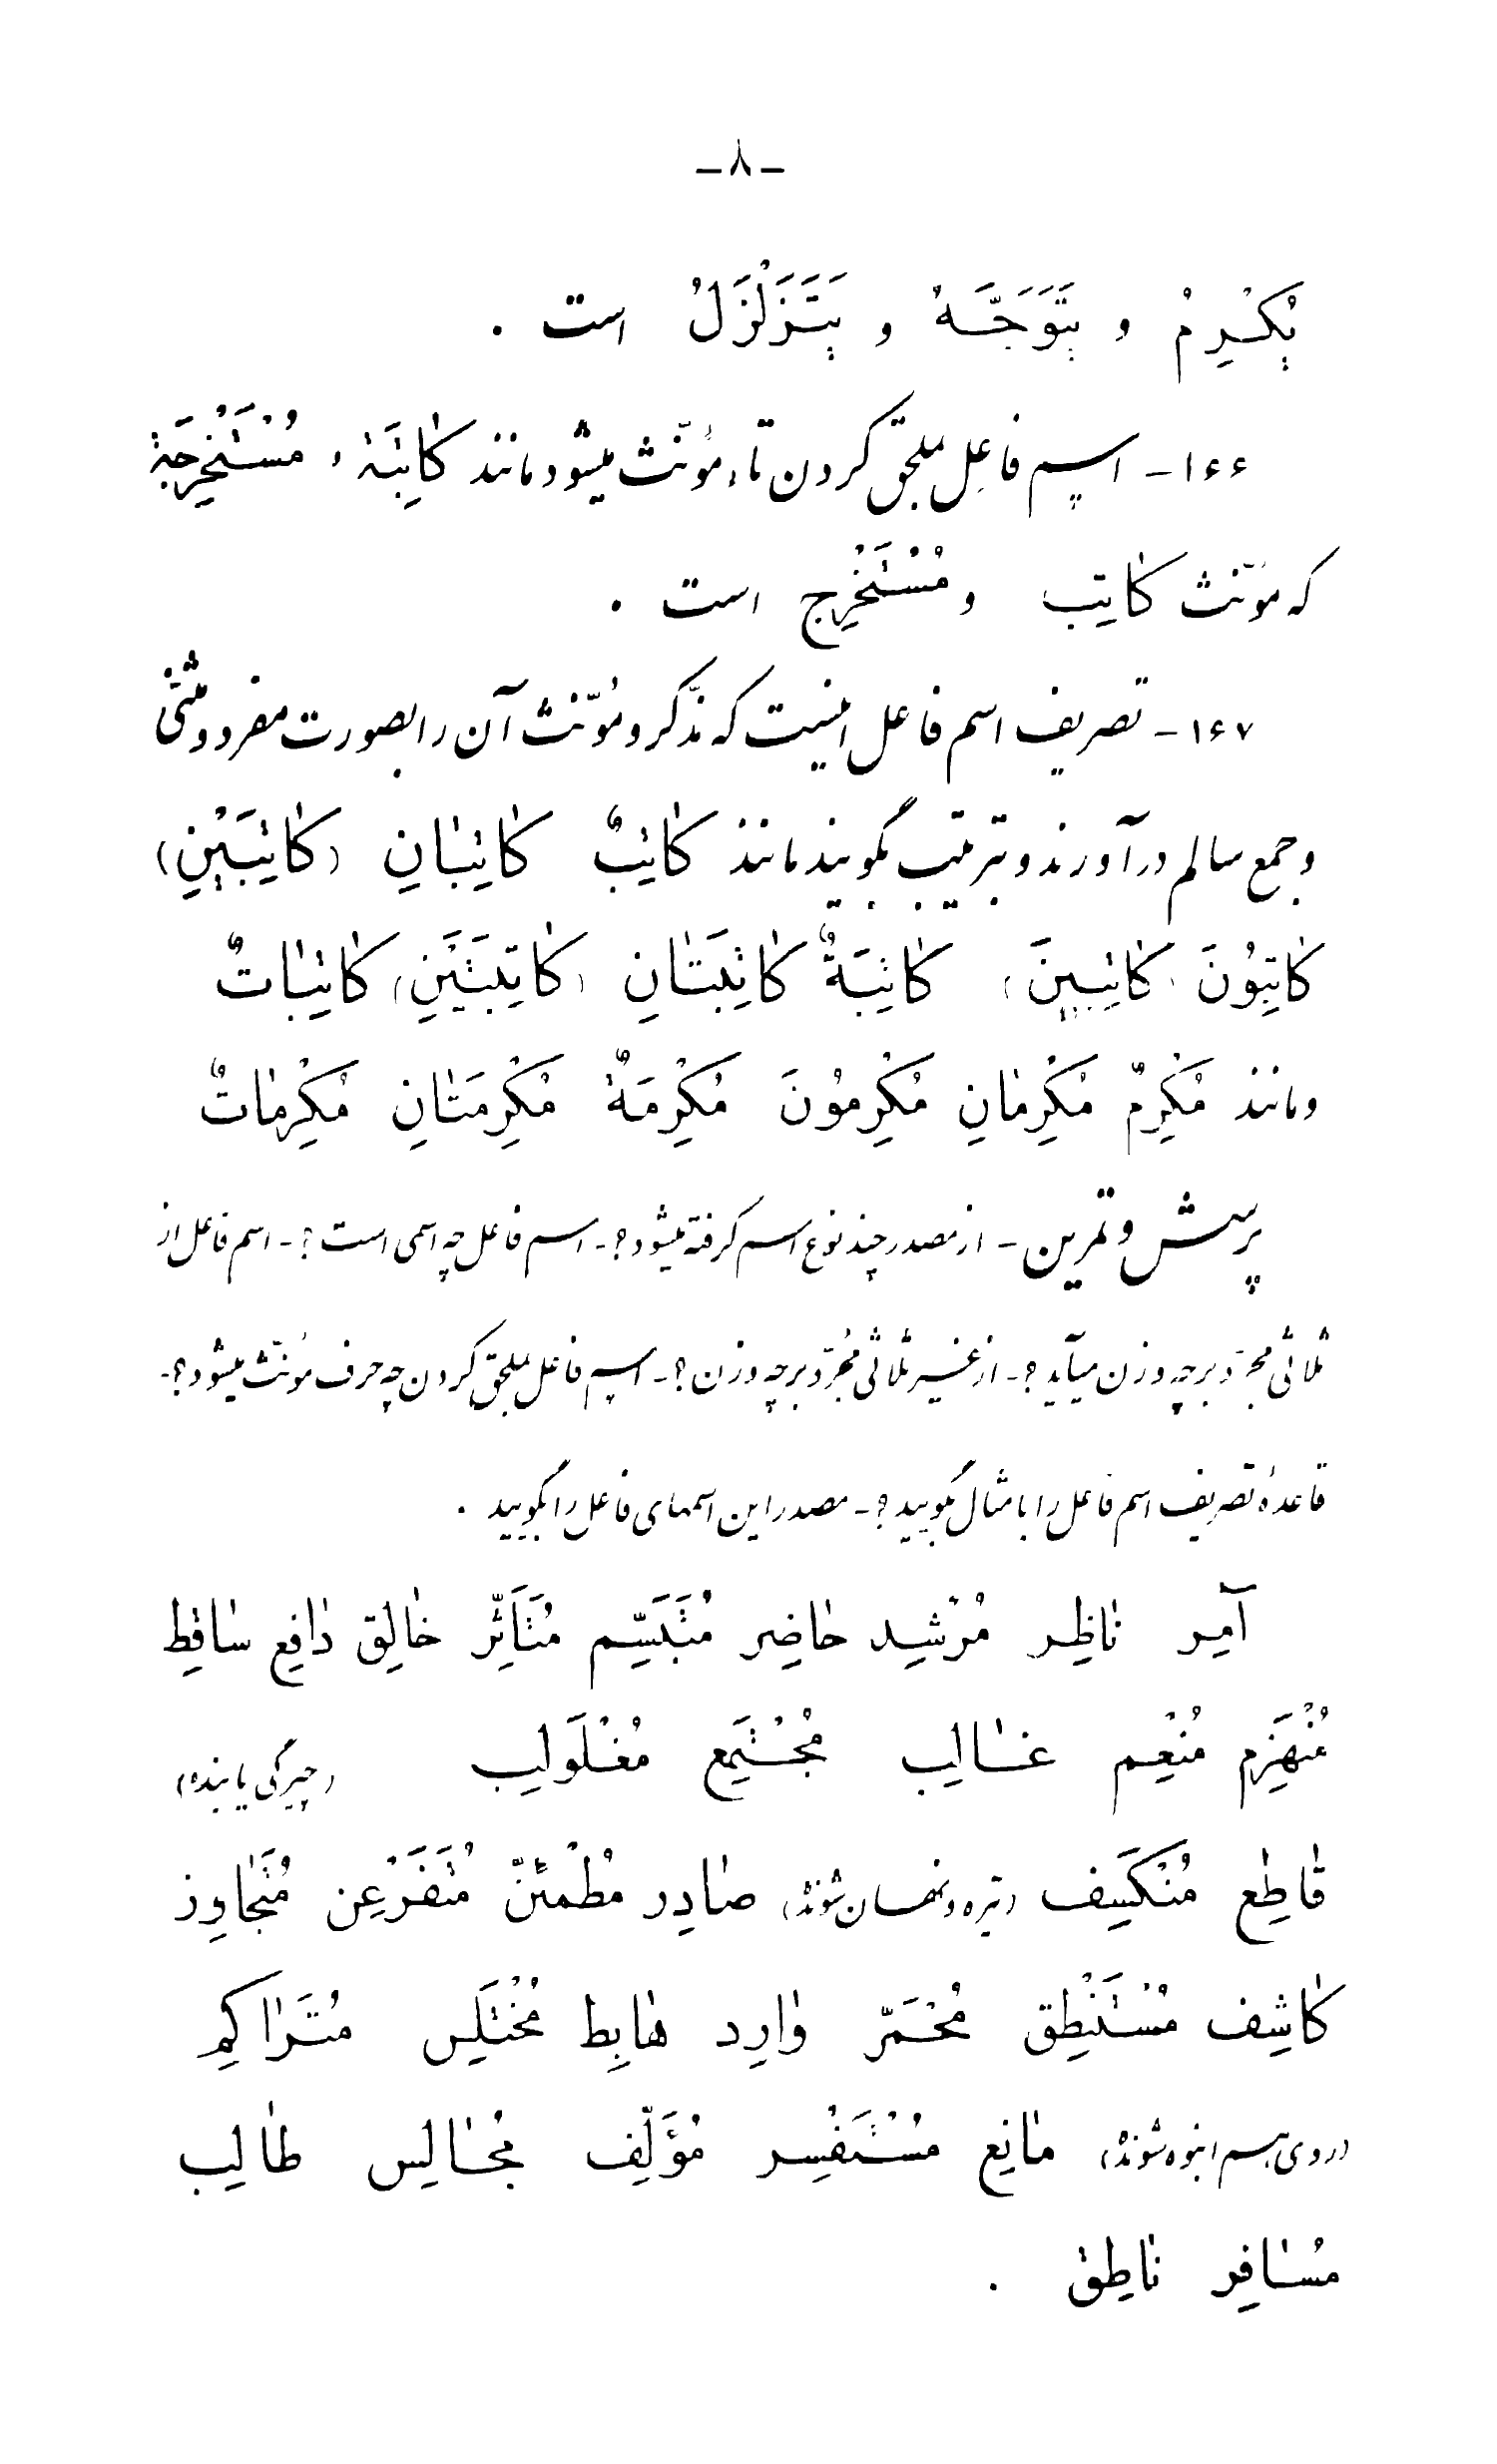 -۸-
یُکْرِمُ و یَتَوَجَّهُ و یَتَزَلْزَلُ است .
۱۶۶- اسم فاعِل بملحق کردن تاء مؤنّث میشود مانند کاتِبَة و مُسْتَخْرِجَة
که مؤنّث کاتِب و مُسْتَخْرِج است .
۱۶۷- تصریف اسم فاعل اینست که مذّکر و مؤنّث آن را بصورت مفرد و مثنّی
و جمع سالم درآورند و بترتیب بگویند مانند کاتِبٌ کاتِبانِ (کاتِبَیْنِ)
کاتِبُونَ (کاتِبینَ) کاتِبَةٌ کاتِبَتانِ (کاتِبَتَیْنِ) کاتِباتٌ
و مانند مُکْرِمٌ مُکْرِمانِ مُکْرِمُونَ مُکْرِمَةٌ مُکْرِمَتانِ مُکْرِماتٌ
پرسش و تمرین - از مصدر چند نوع اسم گرفته میشود؟- اسم فاعل چه اسمی است؟- اسم فاعل از
ثلاثی مجرّد بر چه وزن میآید؟- از غیر ثلاثی مجرّد بر چه وزن؟- اسم فاعل بملحق کردن چه حرف مؤنّث میشود؟-
قاعدهٔ تصریف اسم فاعل را با مثال بگویید؟- مصدر این اسمهای فاعل را بگویید .
آمِر ناظِر مُرْشِد حاضِر مُتَبَسِّم مُتَأَثِّر خالِق دافِع ساقِط
مُنْهَزِم مُنْعِم غالِب مُجْتَمِع مُغْلَولِب (چیرگی یابنده)
قاطِع مُنْکَسِف (تیره و نهان شونده) صادِر مُطْمَئِنّ مُتَفَرْعِن مُتَجاوِز
کاشِف مُسْتَنْطِق مُحْمَرّ وارِد هابِط مُخْتَلِس مُتَراکِم
(روی هم انبوه شونده) مانِع مُسْتَفْسِر مُؤَلِّف مُجالِس طالِب
مُسافِر ناطِق .